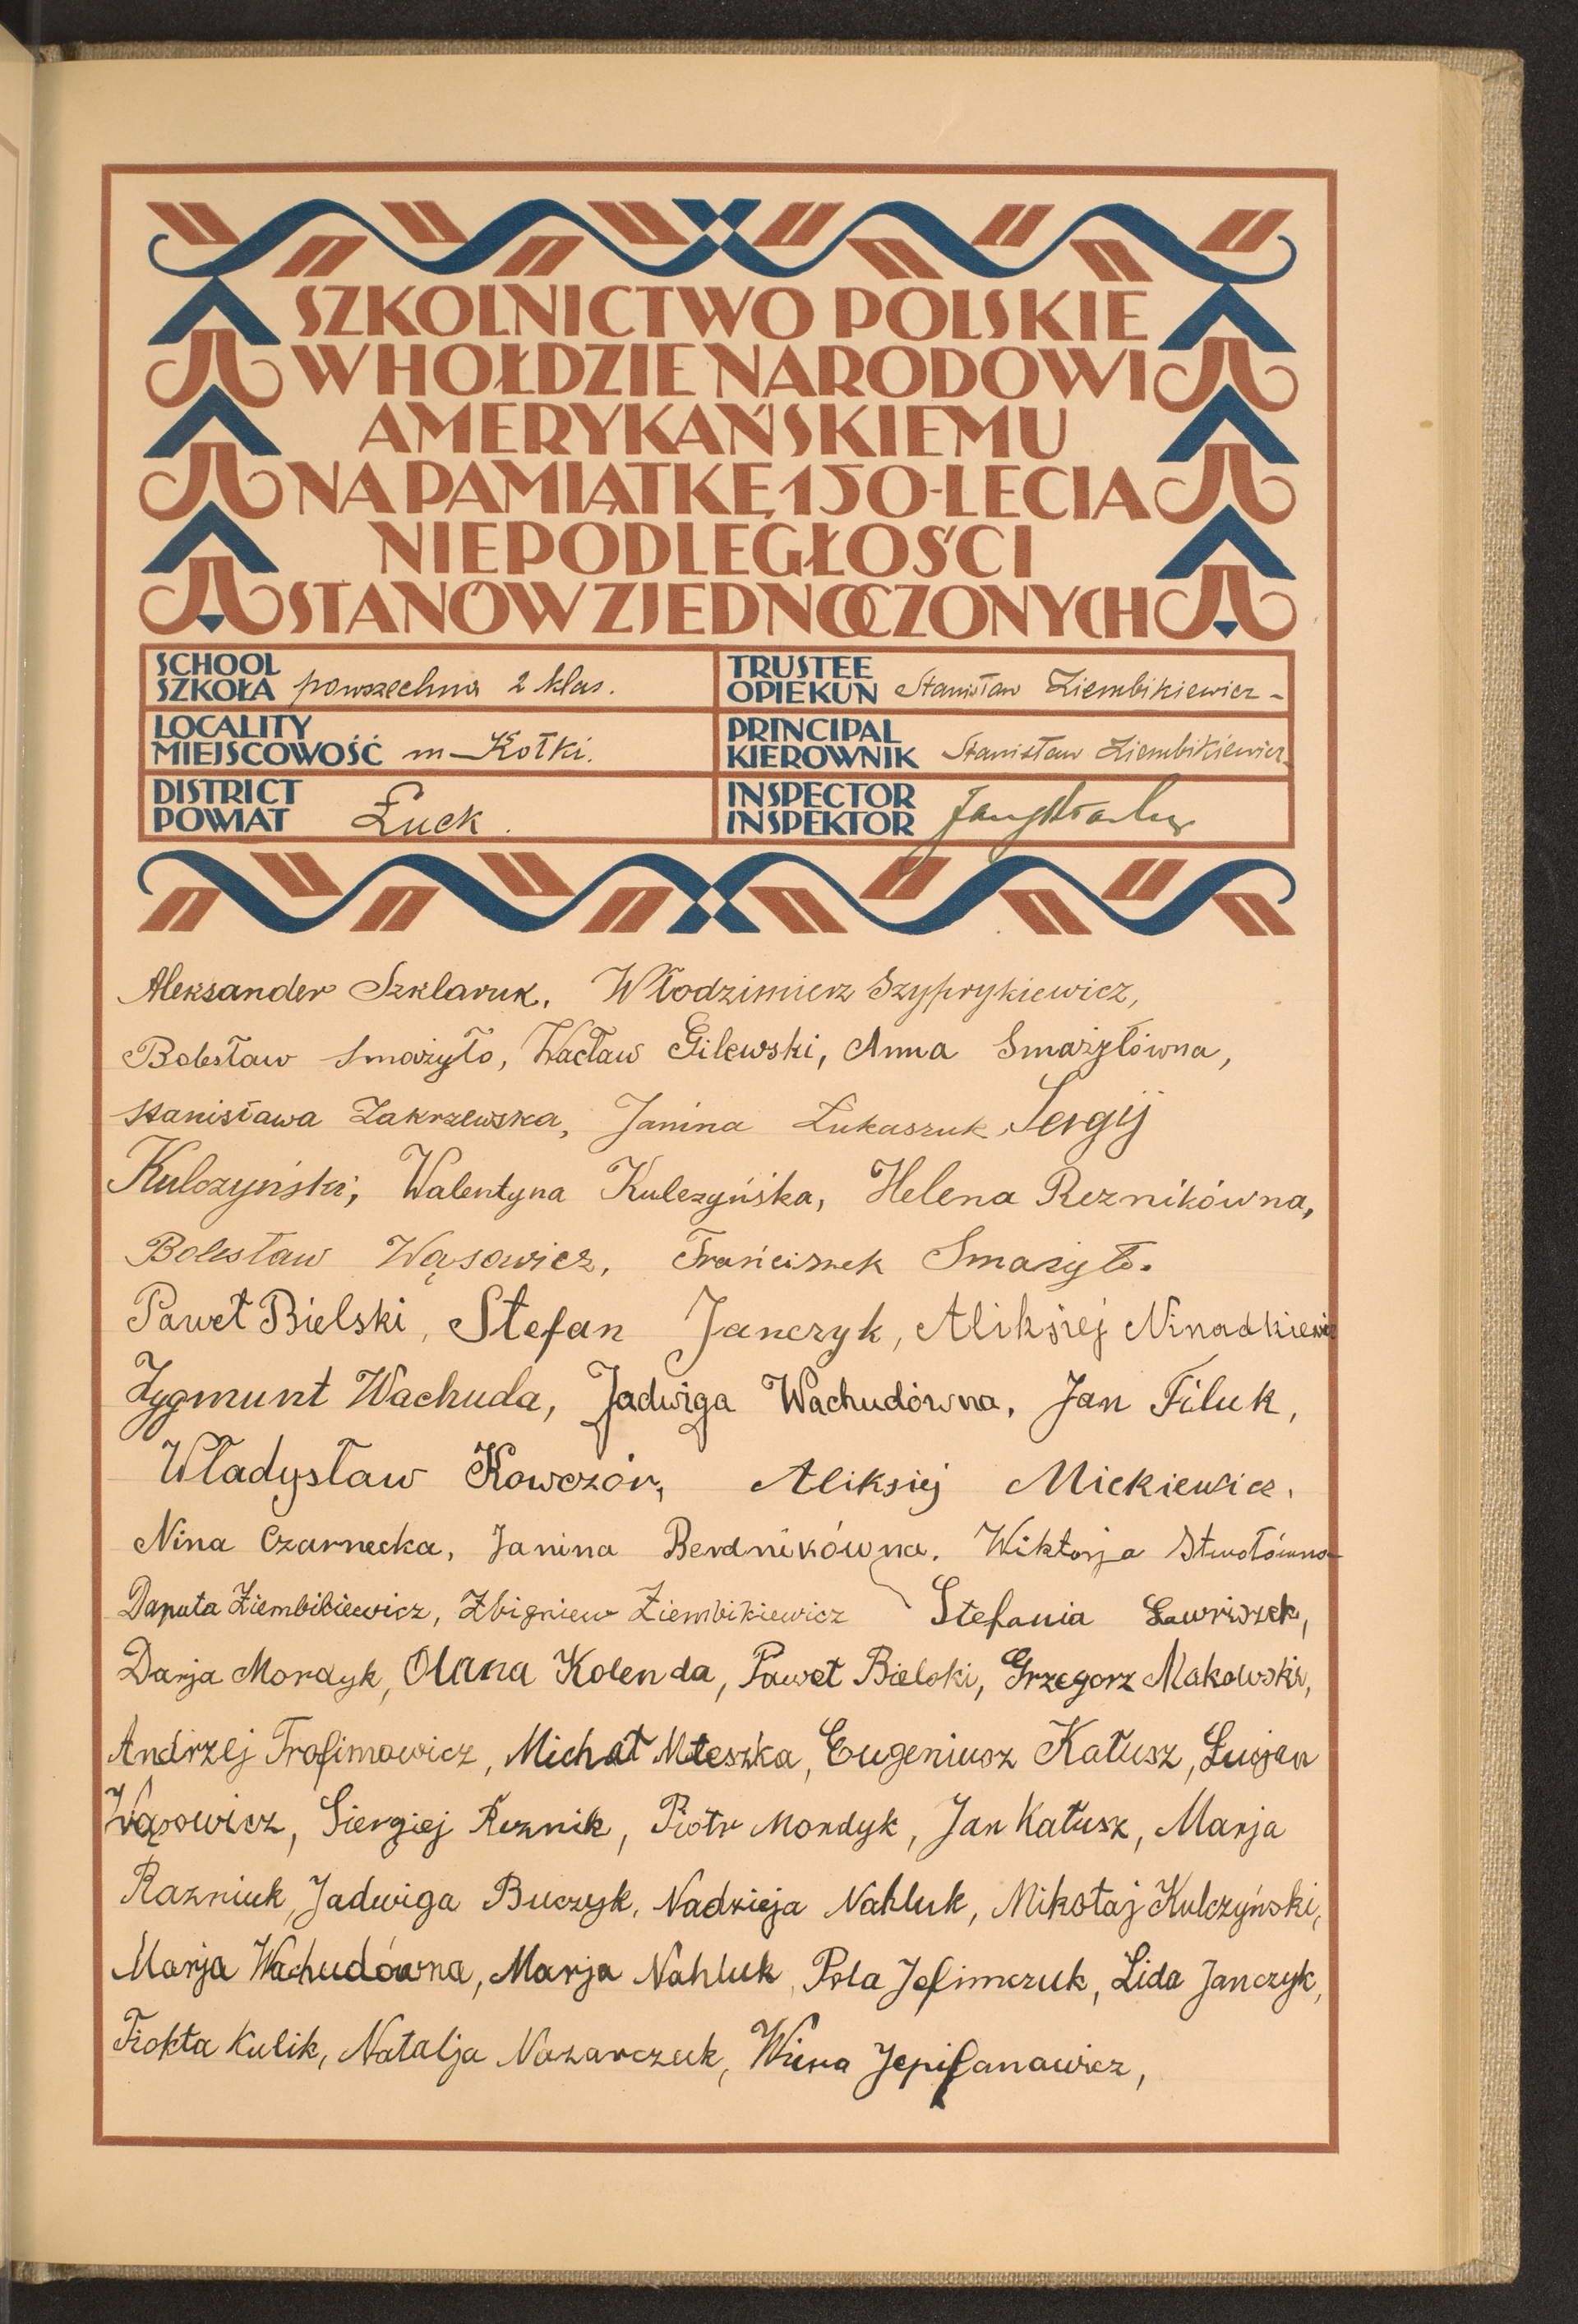 SZKOLNICTWO POLSKIE
W HOŁDZIE NARODOWI
AMERYKAŃSKIEMU
NA PAMIĄTKĘ 150-LECIA
NIEPODLEGŁOŚCI
STANÓW ZJEDNOCZONYCH
SCHOOL
SZKOŁA powszechna 2 klas.
TRUSTEE
OPIEKUN Stanisław Ziembikiewicz -
LOCALITY
MIEJSCOWOŚĆ m-Kołki.
PRINCIPAL
KIEROWNIK Stanisław Ziembikiewicz
DISTRICT
POWIAT Łuck.
INSPECTOR
INSPEKTOR
Aleksander Szklaruk, Włodzimierz Szyprykiewicz,
Bolesław Smażyło, Wacław Gilewski, Anna Smażyłówna,
Stanisława Zakrzewska, Janina Łukaszuk, Sergij
Kulczyński, Walentyna Kulczyńska, Helena Reznikówna,
Bolesław Wąsowicz, Franciszek Smażyło.
Paweł Bielski, Stefan Janczyk, Aliksiej Ninadkiewicz
Zygmunt Wachuda, Jadwiga Wachudówna, Jan Filuk,
Władysław Kowczór, Aliksiej Mickiewicz.
Nina Czarnecka, Janina Berdnikówna. Wiktorja Stwołówna
Danuta Ziembikiewicz, Zbigniew Ziembikiewicz Stefania Ławriszek,
Darja Mordyk, Olana Kolenda, Paweł Bielski, Grzegorz Makowski,
Andrzej Trofimowicz, Michał Mleszka, Eugeniusz Kałusz, Lucjan
Wąsowicz, Siergiej Reznik, Piotr Mordyk, Jan Kałusz, Marja
Razniuk, Jadwiga Buczyk, Nadzieja Nahluk, Mikołaj Kulczyński,
Marja Wachudówna, Marja Nahluk, Pola Jefimczuk, Lida Janczyk,
Fiokta Kulik, Natalja Nazarczuk, Wiera Jepifanowicz,